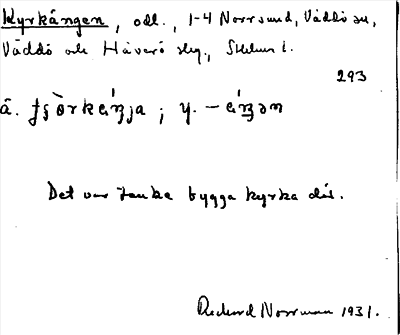 Kyrkängen, odl., 1-4 Norrsund, Väddö sn,
Väddö och Häverö skg., Sthlms l.
293
ä. ; y.
Det var tänka bygga kyrka där.
Rickard Norrman 1931.